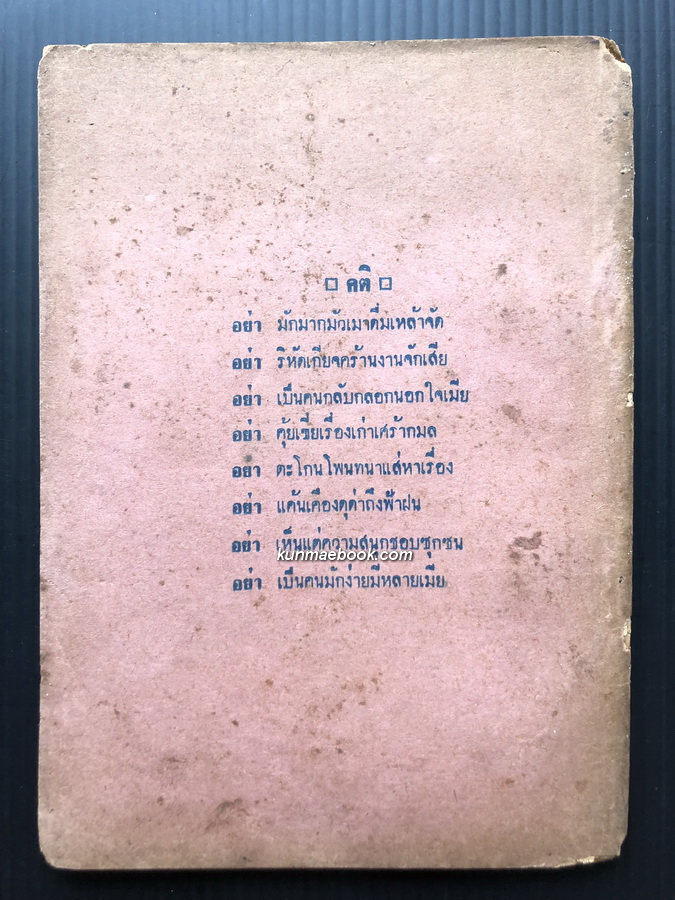 คติ
อย่า มักมากมัวเมาดื่มเหล้าจัด
อย่า ริหัดเกียจคร้านงานจักเสีย
อย่า เป็นคนกลับกลอกนอกใจเมีย
อย่า คุ้ยเขี่ยเรื่องเก่าเศร้ากมล
อย่า ตะโกนโพนทนาแส่หาเรื่อง
อย่า แค้นเคืองดุด่าถึงฟ้าฝน
อย่า เห็นแต่ความสนุกชอบซุกซน
kunmaebook.com
อย่า เป็นคนมักง่ายมีหลายเมีย